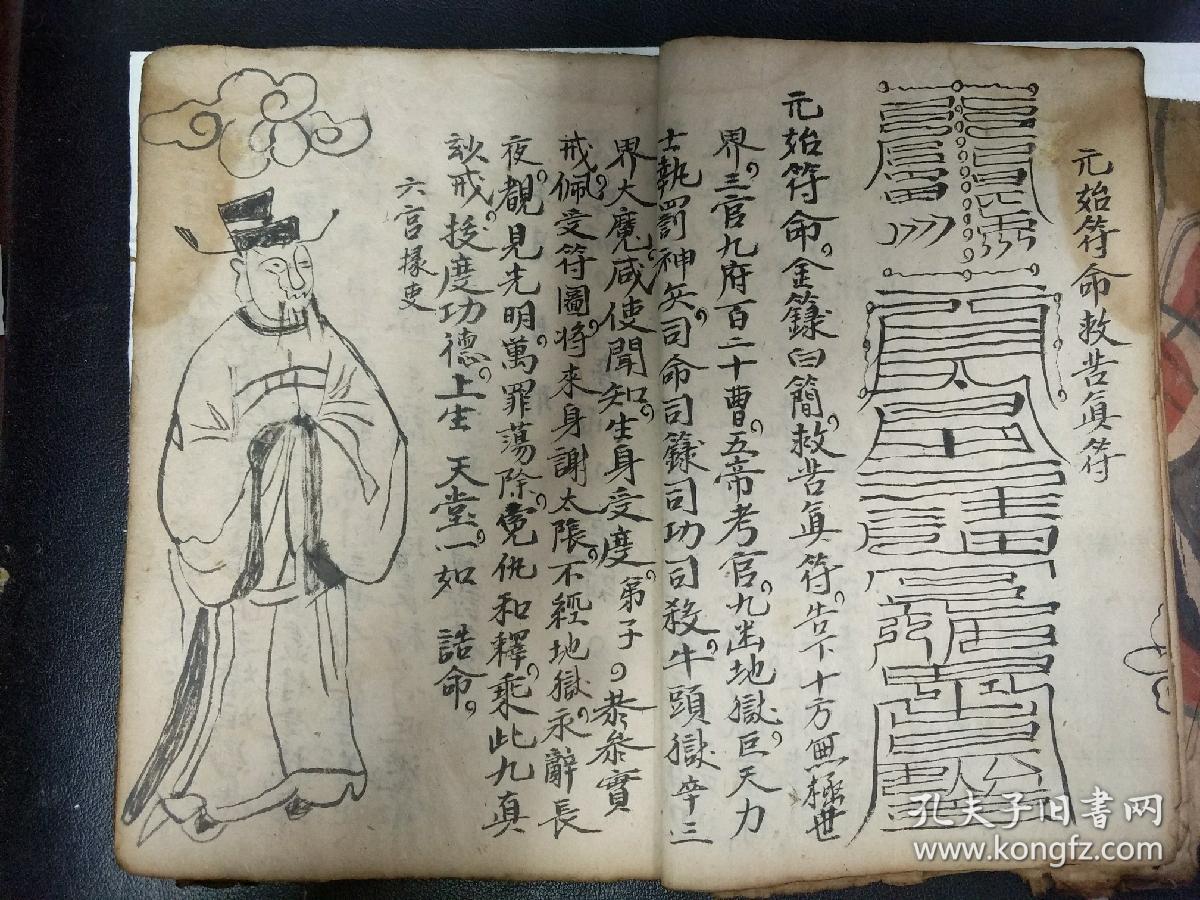 元始符命救苦眞符
元始符命。金籙白簡。救苦眞符。告下十方無極世
界。三官九府百二十曹。五帝考官。九幽地獄。巨天力
士執罰神兵。司命司籙司功司殺。牛頭獄卒三
界大魔。咸使聞知。生身受度。第子。恭叅寳
戒。佩受符圖。將來身謝太陰。不經地獄。永辭長
夜。覩見光明。萬罪蕩除。寃仇和釋。乘此九真
玅戒。授度功德。上生 天堂。一如 誥命。
六宮掾吏
孔夫子旧书网
www.kongfz.com